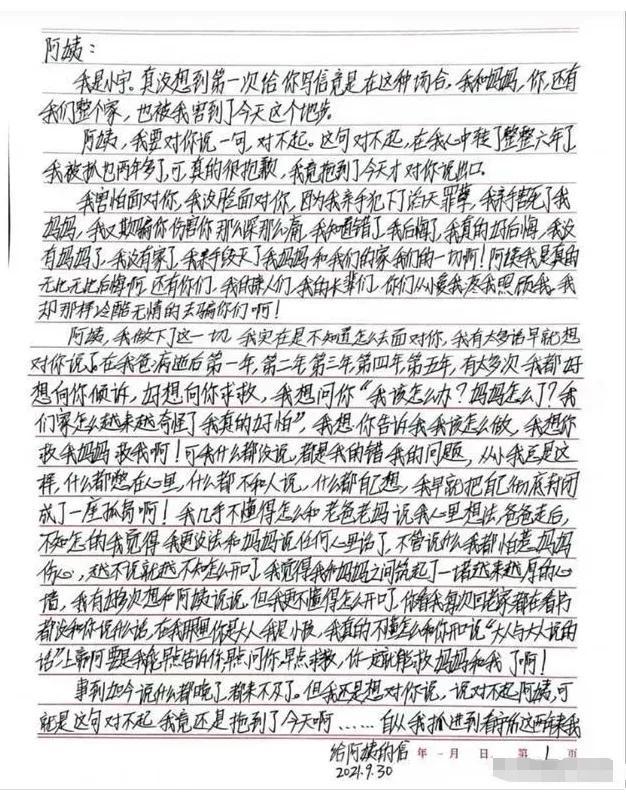 阿姨：
我是小宇。真没想到第一次给你写信竟是在这种场合。我和妈妈，你，还有
我们整个家，也被我害到了今天这个地步。
阿姨，我要对你说一句，对不起。这句对不起，在我心中装了整整六年了，
我被抓也两年多了，可真的很抱歉，我竟拖到了今天才对你说出口。
我害怕面对你，我没脸面对你，因为我亲手犯下了滔天罪孽，我亲手害死了我
妈妈，我又欺骗你伤害你那么深那么痛，我知道错了，我后悔了，我真的好后悔，我没
有妈妈了，我没有家了，我亲手毁灭了我妈妈和我们的家我们的一切啊！阿姨我是真的
无比无比后悔啊，还有你们，我的亲人们，我的长辈们，你们从小爱我疼我照顾我，我
却那样冷酷无情的去骗你们啊！
阿姨，我做下了这一切，我实在是不知道怎么去面对你，我有太多话早就想
对你说了。在我爸病逝后第一年，第二年，第三年，第四年，第五年，有太多次我都好
想向你倾诉，好想向你求救，我想问你“我该怎么办？妈妈怎么了？我
们家怎么越来越奇怪了我真的好怕”，我想你告诉我我该怎么做，我想你
救我妈妈救我啊！可我什么都没说，都是我的错我的问题，从小我总是这
样，什么都憋在心里，什么都不和人说，什么都自己想，我早就把自己彻底封闭
成了一座孤岛啊！我几乎不懂得怎么和老爸老妈说我心里想法，爸爸走后，
不知怎的我觉得我更没法和妈妈说任何心里话了，不管说什么我都怕惹妈妈
伤心，越不说就越不知怎么开口了，我觉得我和妈妈之间筑起了一堵越来越厚的心
墙，我有好多次想和阿姨说说，但我更不懂得怎么开口了，你看我每次回老家都在看书
都没和你说什么话，在我那里你是大人我是小孩，我真的不懂怎么和你开口说“大人与大人说的
话”上帝阿要是我能早点告诉你，早点问你，早点求救，你一定就能救妈妈和我了啊！
事到如今说什么都晚了，都来不及了。但我还是想对你说，说对不起阿姨，可
就是这句对不起，我竟还是拖到了今天啊……自从我抓进到看守所这两年来我
给阿姨的信 年 月 日 第 1 页
2021.9.30